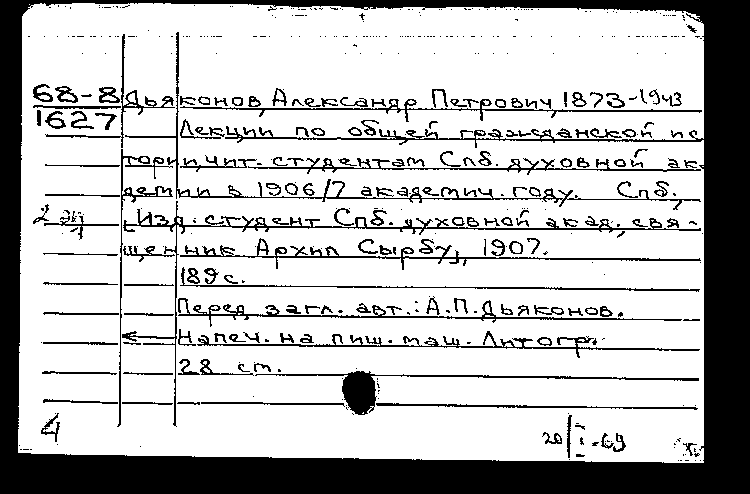 68-8 Дьяконов, Александр Петрович, 1873-1943
1627 Лекции по общей гражданской ис
тории, чит. студентам Спб. духовной ака
демии в 1906/7 академич. году. Спб.,
2 эк [Изд. студент Спб. духовной акад., свя-
щенник Архип Сырбу], 1907.
189 с.
Перед загл. авт.: А.П. Дьяконов.
Напеч. на пиш. маш. Литогр.
28 см.
4
20/I-69